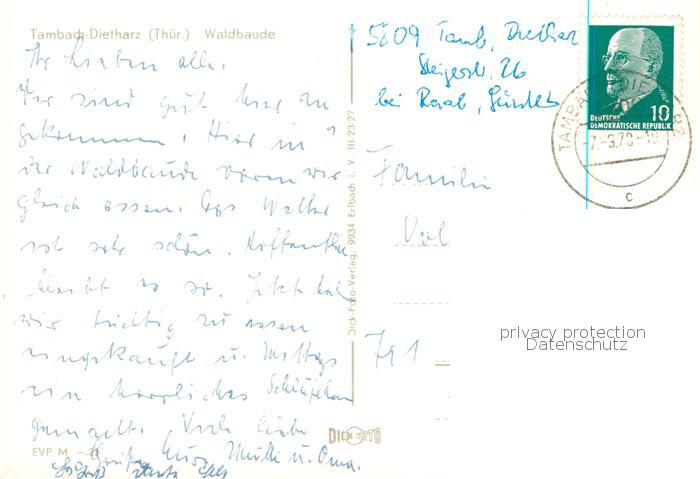 Tambach-Dietharz (Thür.) Waldbaude
Ihr Lieben alle.
Wir sind gut hier an
gekommen. Hier in
der Waldbaude waren wir
gleich essen. Das Wetter
ist sehr schön. Hoffentlich
bleibt es so. Jetzt hab
wir tüchtig zu essen
eingekauft u. Mittags
ein herrliches
gemacht. Viele liebe
Grüße Eure Mutti u. Oma.
EVP M
Dick-Foto-Verlag, 9934 Erlbach i. V. III 23 27
DICK FOTO
5809 Tamb. Dietharz
26
bei
Familie
DEUTSCHE
DEMOKRATISCHE REPUBLIK
10
TAMBACH-DIETHARZ
C
privacy protection
Datenschutz